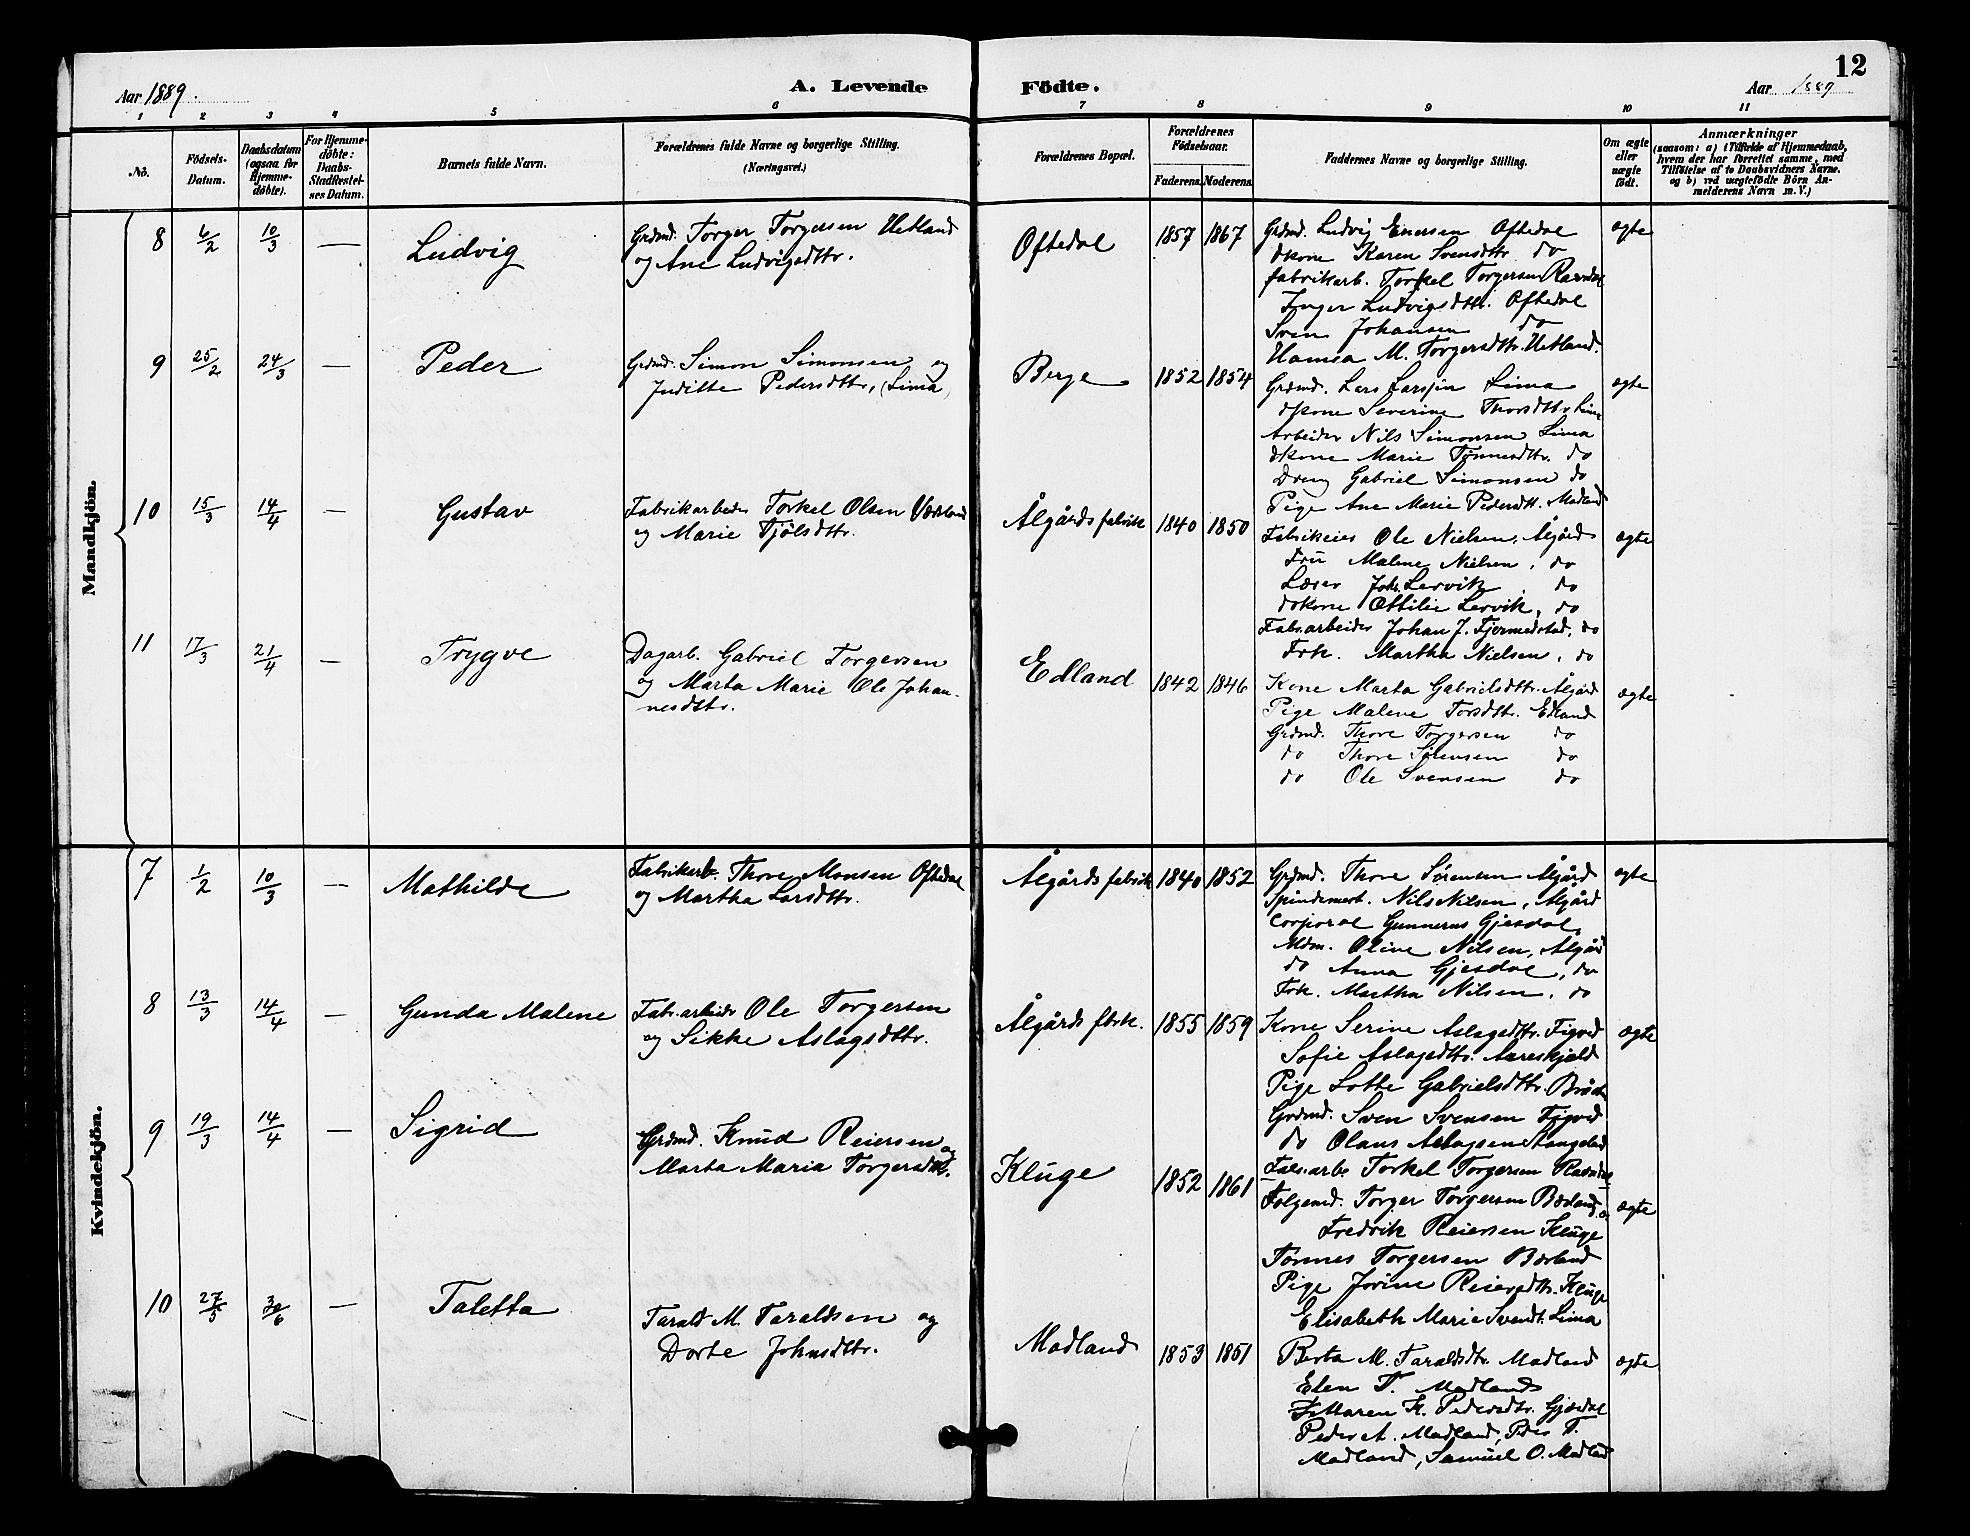 12
Aar 1889. A. Levende Födte. Aar 1889
1 2 3 4 5 6 7 8 9 10 11
No. Födsels-Datum. Daabsdatum (ogsaa for Hjemmedöbte). For Hjemmedöbte: Daabs-Stadfestelses Datum. Barnets fulde Navn. Forældrenes fulde Navne og borgerlige Stilling. (Næringsvei.) Forældrenes Bopæl. Forældrenes Födselsaar. Faderens. Moderens. Faddernes Navne og borgerlige Stilling. Om ægte eller uægte födt. Anmærkninger (saasom: a) i Tilfælde af Hjemmedaab, hvem der har forrettet samme, med Tilföielse af to Daabsvidners Navne. og b) ved uægtefödte Börn Anmelderens Navn m. V.)
Mandkjön.
8 6/2 10/3 — Ludvig
Grdmd. Torger Torgersen Hetland
og Ane Ludvigsdttr.
Oftedal 1857 1867
Grdmd. Ludvig Enersen Oftedal
dkone Karen Svensdttr. do
fabrikarb. Torkel Torgersen Ravndal
Inger Ludvigsdttr. Oftedal
Sven Johansen do
Hanna M. Torgersdttr. Hetland.
ægte
9 25/2 24/3 — Peder
Grdmd. Simon Simonsen og
Juditte Pedersdttr. (Lima)
Berge 1852 1854
Grdmd. Lars Larssen Lima
dkone Severine Thorsdttr. Lima
Arbeider Nils Simonsen Lima
dkone Marie Tønnesdttr. do
Dreng Gabriel Simonsen do
Pige Ane Marie Pedersdtt. Madland
ægte
10 15/3 14/4 — Gustav
Fabrikarbeder Torkel Olsen
og Marie Tjølsdttr.
Ålgårds fabrik 1840 1850
Fabrikeier Ole Nielsen. Ålgård
Fru Malene Nielsen. do
Lærer Johs. Lervik do
dokone Ottilie Lervik, do
Fabr.arbeider Johan J. Fjermedstad, do
Frk. Martha Nielsen. do
ægte
11 17/3 21/4 — Trygve
Dagarb. Gabriel Torgersen
og Marta Marie Ole Johan-
nesdttr.
Edland 1842 1846
Kone Marta Gabrielsdttr. Ålgård
Pige Malene Torsdttr. Edland
Grdmd. Thore Torgersen do
do Thore Sørensen do
do Ole Svensen do
ægte
Kvindekjön.
7 1/2 10/3 — Mathilde
Fabrikarb. Thore Monsen Oftedal
og Martha Larsdttr.
Ålgårds fabrik 1840 1852
Grdmd. Thore Sørensen Ålgård
Spindemest. Nils Nilsen, Ålgård
Corporal Gunnerus Gjesdal,
Mdm. Oline Nilsen, Ålgård
do Anna Gjesdal, do
Frk. Martha Nilsen. do
ægte
8 13/3 14/4 — Gunda Malene
Fabr.arbeider Ole Torgersen
og Sikke Aslagsdttr.
Ålgårds fbrk. 1855 1859
Kone Serine Aslagsdttr. Figved
Sofie Aslagsdttr. Aareskjold
Pige Lotte Gabrielsdttr.
Grdmd. Sven Svensen Figved
do Olaus Aslagsen
Fabr.arb. Torkel Torgersen Ravndal
ægte
9 19/3 14/4 — Sigrid
Grdmd. Knud Reiersen og
Marta Maria Torgersdttr.
Kluge 1852 1861
Folgemd. Torger Torgersen Bærland
Fredrik Reiersen Kluge
Tønnes Torgersen Bærland
Pige Jorine Reiersdttr. Kluge
Elisabeth Marie Svendt. Lima
ægte
10 27/5 30/6 — Taletta
Tarald M. Taraldsen og
Dorte Johnsdttr.
Madland 1853 1851
Berta M. Taraldsdtr. Madland
Elen T. Madland
Maren K. Pedersdtr. Gjesdal
Peder A. Madland, Peder T.
Madland, Samuel O. Madland
ægte